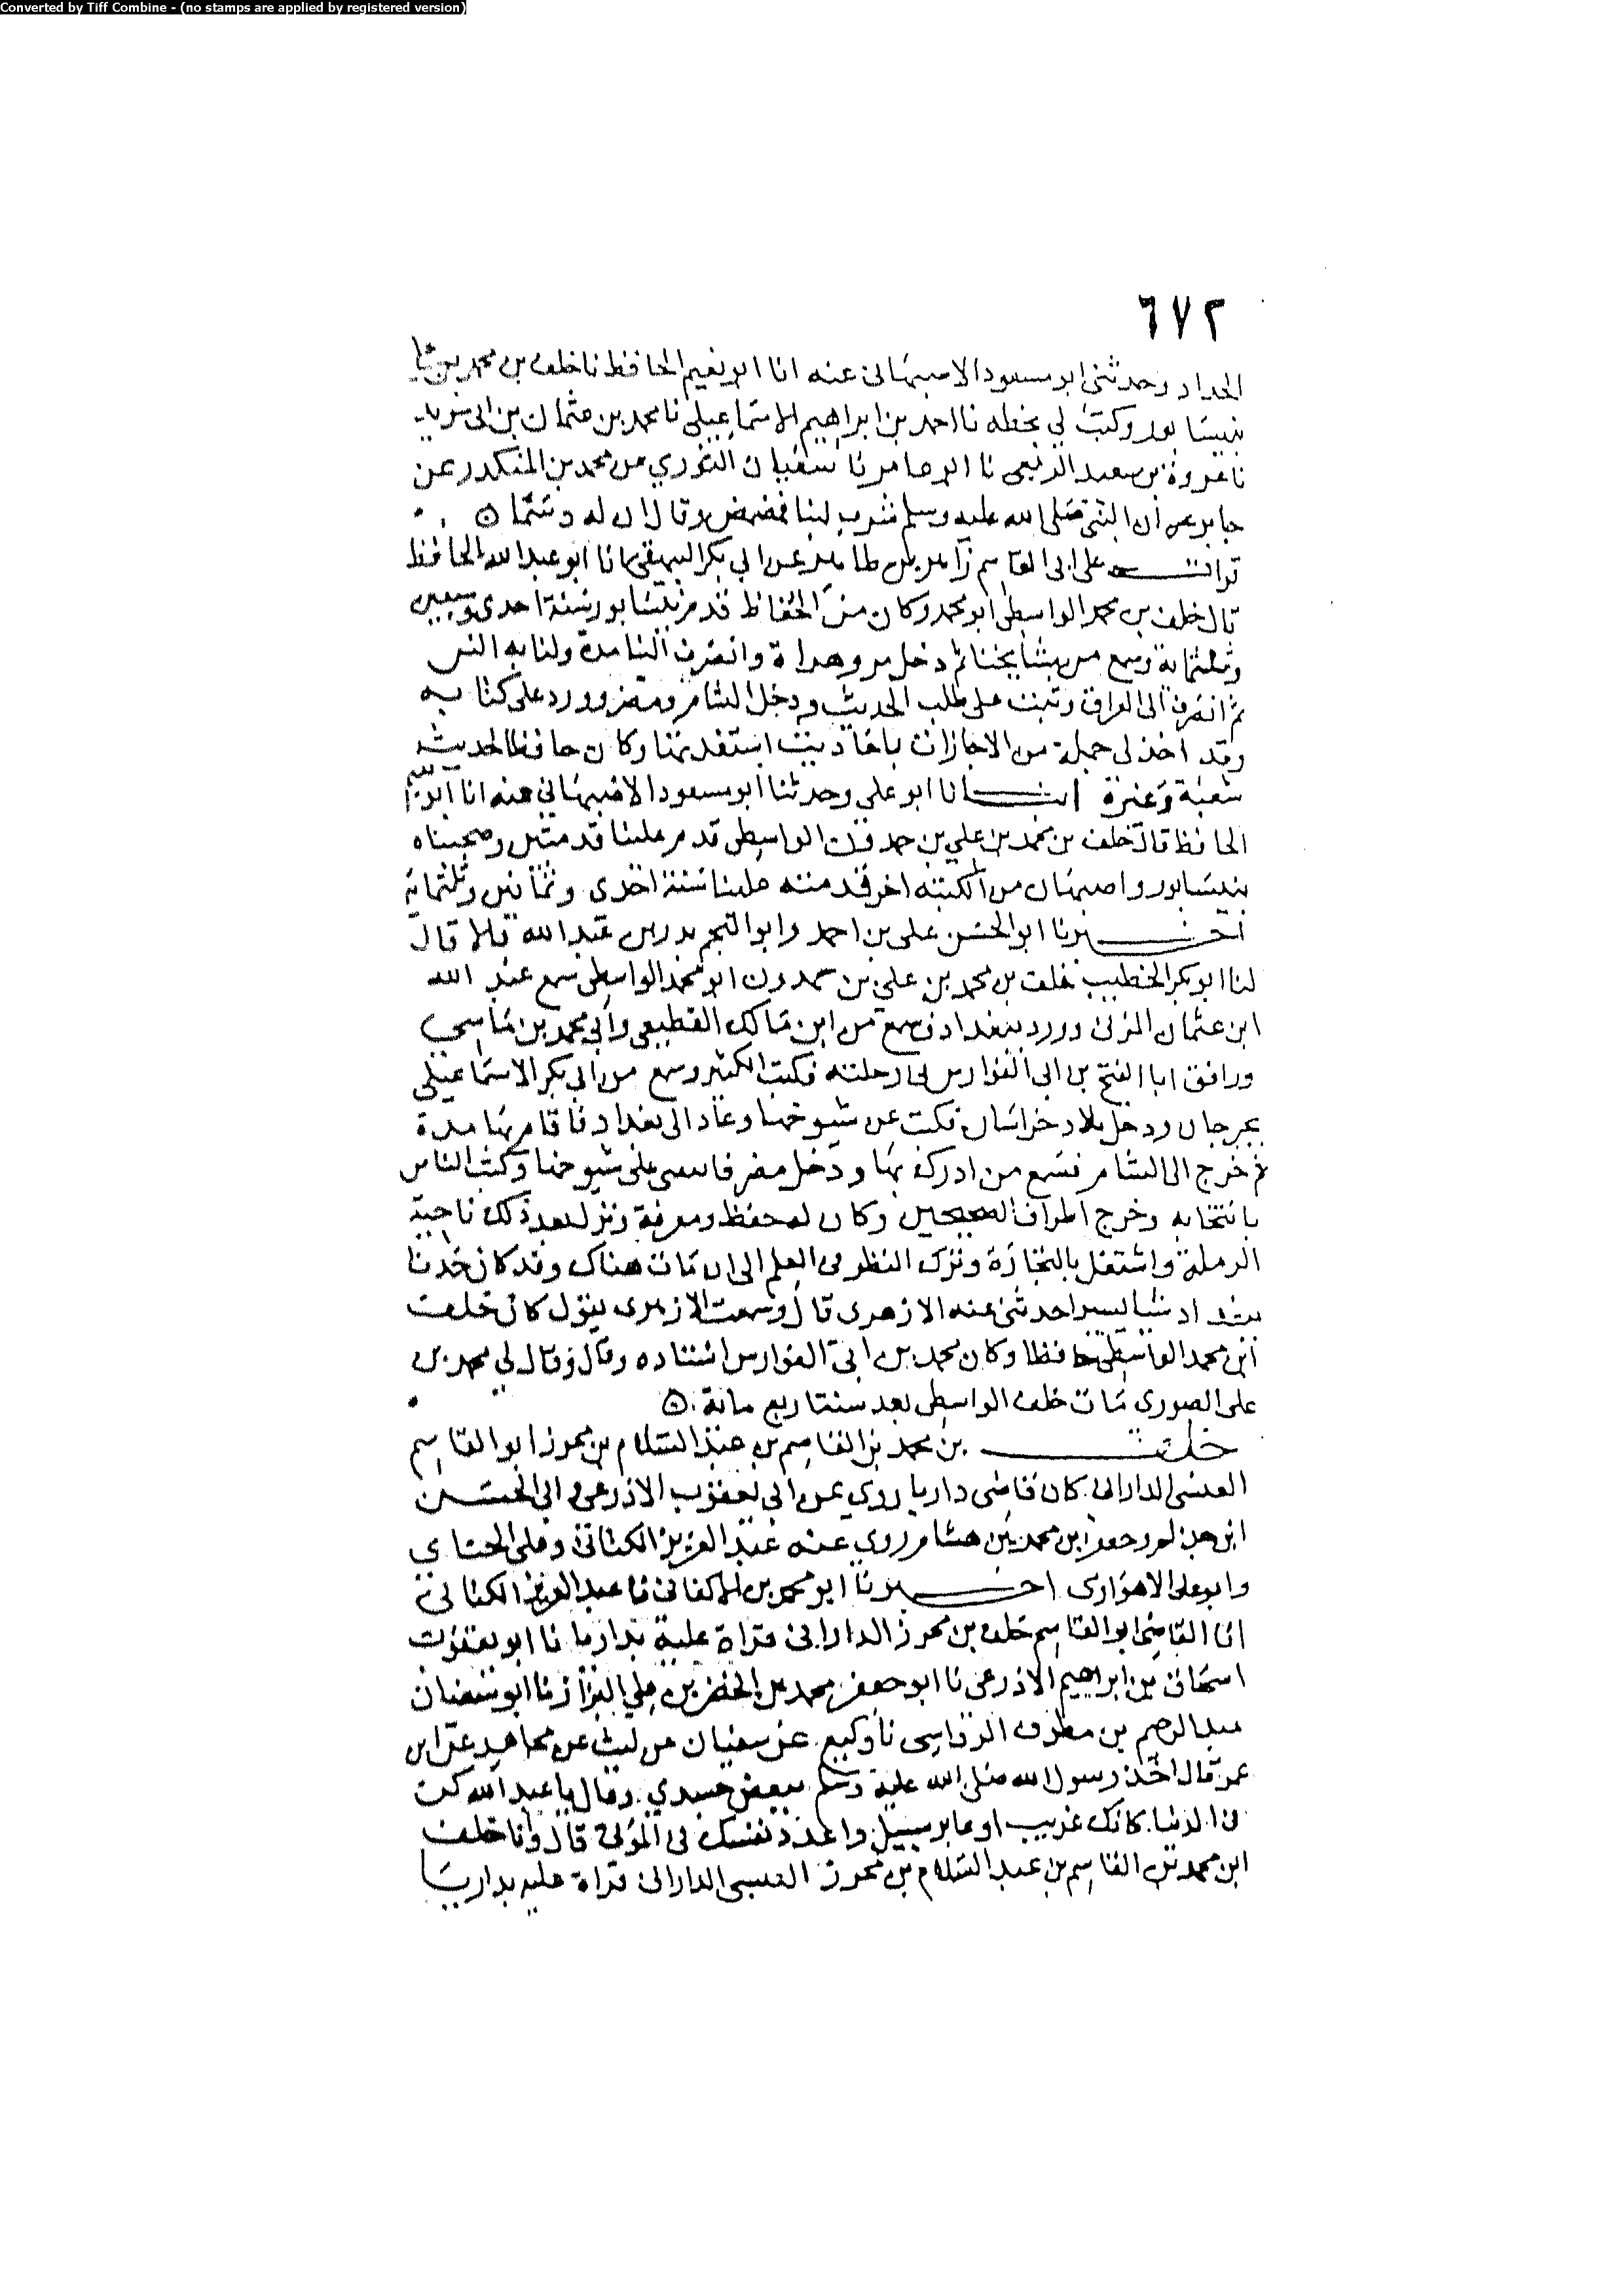 Converted by Tiff Combine - (no stamps are applied by registered version)
٦٧٢
الحداد وحدثني ابو مسعود الاصبهاني عنه انا ابو نعيم الحافظ نا خلف بن محمد بن علي
بنيسابور وكتب لي بخطه نا احمد بن ابراهيم الاسماعيلي نا محمد بن عثمان بن ابي سويد
نا عروة بن سعيد الربعي نا ابو عامر نا سفيان الثوري عن محمد بن المنكدر عن
جابر عن أن النبي صلى الله عليه وسلم شرب لبنا فمضمض وقال ان له دسما ن
قرات على ابي القاسم زاهر بن طاهر عن ابي بكر البيهقي انا ابو عبد الله الحافظ
قال خلف بن محمد الواسطي ابو محمد وكان من الحفاظ قدم نيسابور سنة احدى وسبعين
وثلثماية وسمع من مشايخنا ثم دخل مرو وهراة وانصرف الينا مدة
ثم انصرف الى العراق وثبت على طلب الحديث ودخل الشام ومصر وورد على كتابه
وقد اخذ لي جملة من الاجازات باحاديث استفدتها وكان حافظا لحديث
شعبة وغيره انبانا ابو علي وحدثنا ابو مسعود الاصبهاني عنه انا ابو نعيم
الحافظ قال خلف بن محمد بن علي بن حمدون الواسطي قدم علينا قدمتين وصحبناه
بنيسابور واصبهان من الكتبة اخر قدمته علينا سنة احدى وثمانين وثلثمائة
اخبرنا ابو الحسن علي بن احمد وابو النجم بدر بن عبد الله قالا قال
لنا ابو بكر الخطيب خلف بن محمد بن علي بن حمدون ابو محمد الواسطي سمع عبد الله
ابن عثمان المزني وورد بغداد فسمع من ابن مالك القطيعي وأبي محمد بن ماسي
ورافق ابا الفتح بن ابي الفوارس في رحلته فكتب الكثير وسمع من ابي بكر الاسماعيلي
بجرجان ودخل بلاد خراسان فكتب عن شيوخها وعاد الى بغداد فاقام بها مدة
ثم خرج الى الشام فسمع من ادركه بها ودخل مصر فانتقى على شيوخها وكتب الناس
بانتخابه وخرج اطراف الصحيحين وكان له حفظ ومعرفة ونزل بعد ذلك ناحية
الرملة واشتغل بالتجارة وترك النظر في العلم الى ان مات هناك وقد كان حدثنا
ببغداد شيا يسيرا حدثني عنه الازهري قال وسمعت الازهري يقول كان خلف
ابن محمد الواسطي حافظا وكان محمد بن ابي الفوارس استاده وقال وقال لي محمد بن
علي الصوري مات خلف الواسطي بعد سنة اربع مائة ن
خلف بن محمد بن القاسم بن عبد السلام بن محرز ابو القاسم
العنسي الداراني كان قاضي داريا روى عن ابي يعقوب الاذرعي وابي الحسن
ابن حذلم وجعفر ابن محمد بن هشام روى عنه عبد العزيز الكتاني وعلي الحنائي
وابو علي الاهوازي اخبرنا ابو محمد بن الاكفاني نا عبد العزيز الكتاني
انا القاضي ابو القاسم خلف بن محرز الداراني قراة عليه بداريا نا ابو يعقوب
اسحاق بن ابراهيم الاذرعي نا ابو جعفر محمد بن الخضر بن علي البزاز نا ابو سفيان
عبد الرحيم بن مطرف الرواسي نا وكيع عن سفيان عن ليث عن مجاهد عن ابن
عمر قال اخذ رسول الله صلى الله عليه وسلم ببعض جسدي وقال يا عبد الله كن
في الدنيا كانك غريب او عابر سبيل واعدد نفسك في الموتى قال وانا خلف
ابن محمد بن القاسم بن عبد السلام بن محرز العنسي الداراني قراة عليه بداريا